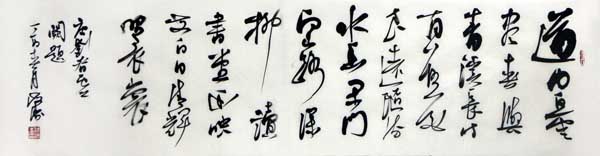 道由白雲
盡春與
青溪長時
有落花
至遠隨流
水香閑門
向山路深
柳讀
書堂幽映
每白日清輝
照衣裳
唐劉眘虛
闕題